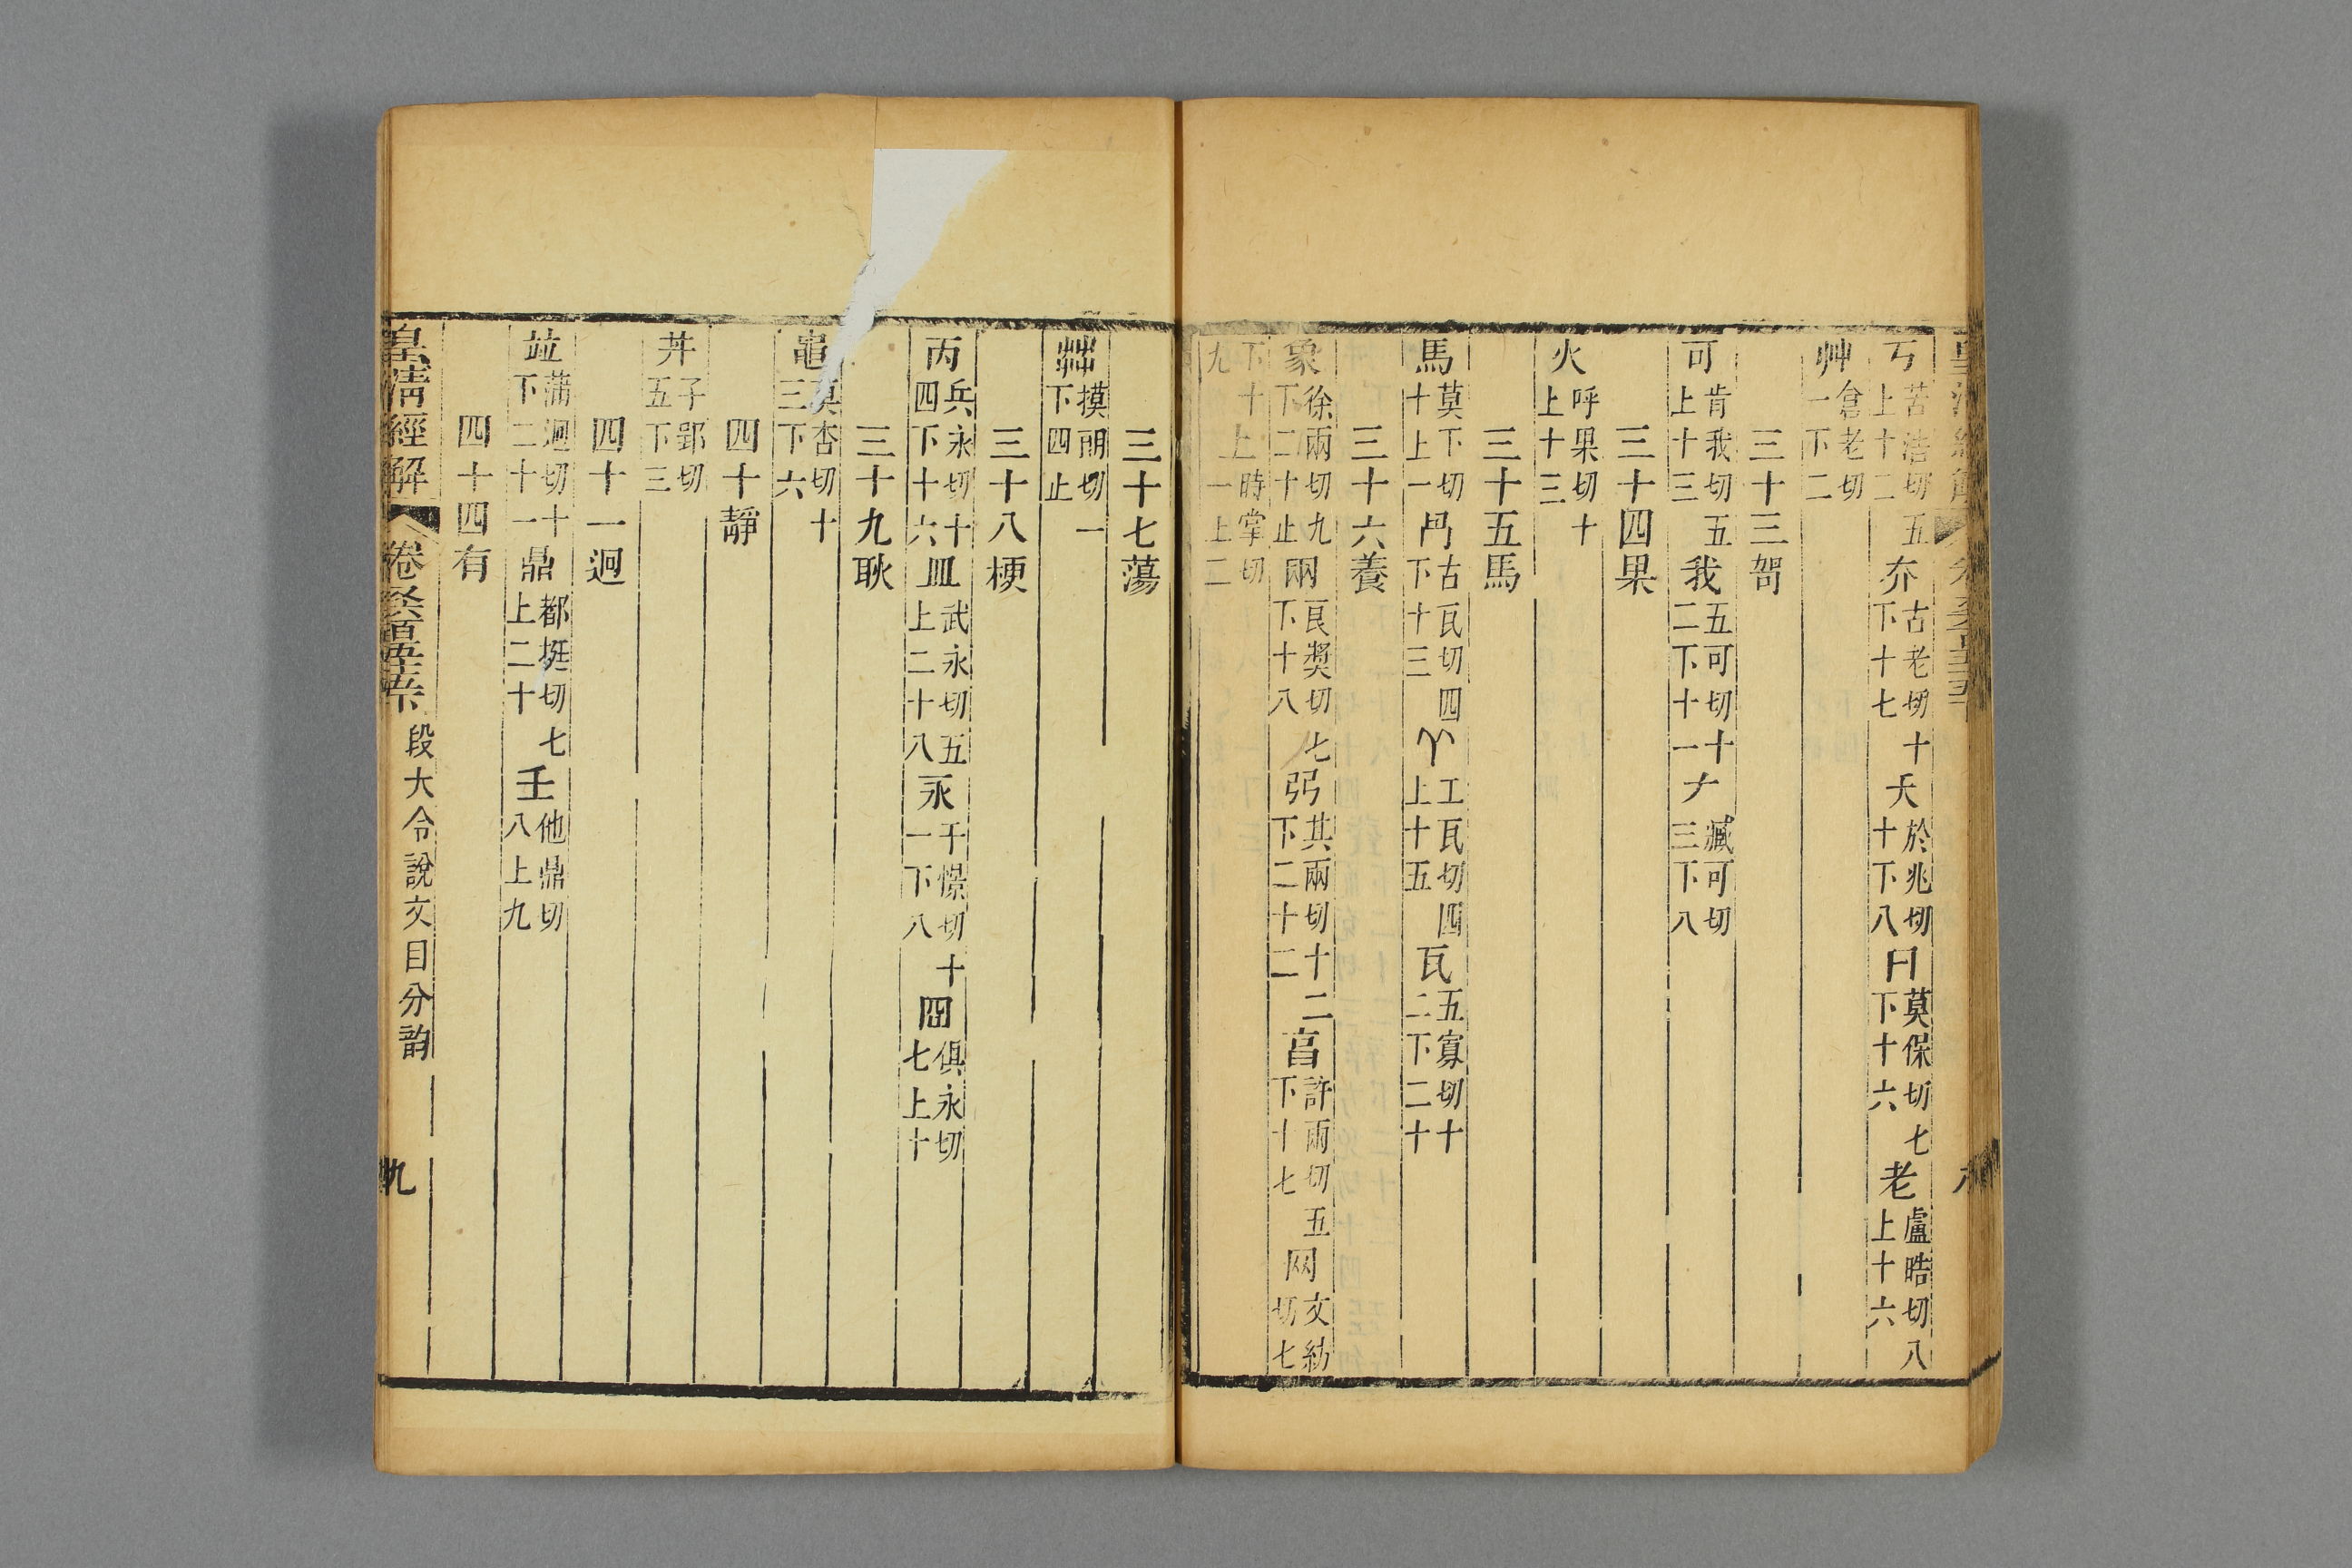 丂苦浩切五上十二夰古老切十下十七夭於兆切十下八冃莫保切七下十六老盧晧切八上十六
艸倉老切一下二
三十三哿
可肯我切五上十三我五可切十二下十一𠂇臧可切三下八
三十四果
火呼果切十上十三
三十五馬
馬莫下切十上一冎古瓦切四下十三𠁥工瓦切四上十五瓦五寡切十二下二十
三十六養
象徐兩切九下二十止㒳良奬切七下十八弜其兩切十二下二十二亯許兩切五下十七网文紡切七
下十上時掌切一上二
九
三十七蕩
茻摸朗切一下四止
三十八梗
丙兵永切十四下十六皿武永切五上二十八永于憬切十一下八囧俱永切七上十
三十九耿
黽莫杏切十三下六
四十靜
井子郢切五下三
四十一迥
竝蒲迥切十下二十一鼎都挺切七上二十壬他鼎切八上九
四十四有
皇清經解
段大令說文目分韵
九